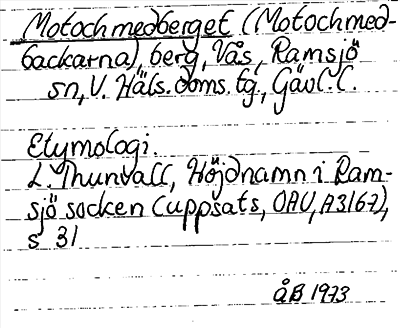 Motochmedberget (Motochmed-
backarna), berg, Vås, Ramsjö
sn, V. Häls. doms. tg., Gävl. l.
Etymologi.
L. Thunvall, Höjdnamn i Ram-
sjö socken (uppsats, OAU, A3167),
s 31
ÅB 1973